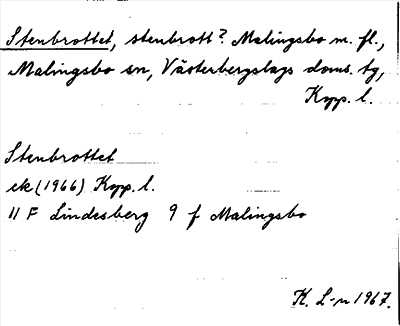 Stenbrottet, stenbrott? Malingsbo m. fl.,
Malingsbo sn, Västerbergslags doms. tg,
Kopp. l.
Stenbrottet
ek (1966) Kopp. l.
11 F Lindesberg 9 f Malingsbo
K. L-n 1967.